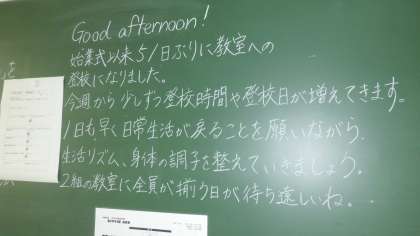 Good afternoon!
始業式以来51日ぶりに教室への
登校になりました。
今週から少しずつ登校時間や登校日が増えてきます。
1日も早く日常生活が戻ることを願いながら、
生活リズム、身体の調子を整えていきましょう。
2組の教室に全員が揃う日が待ち遠しいね。